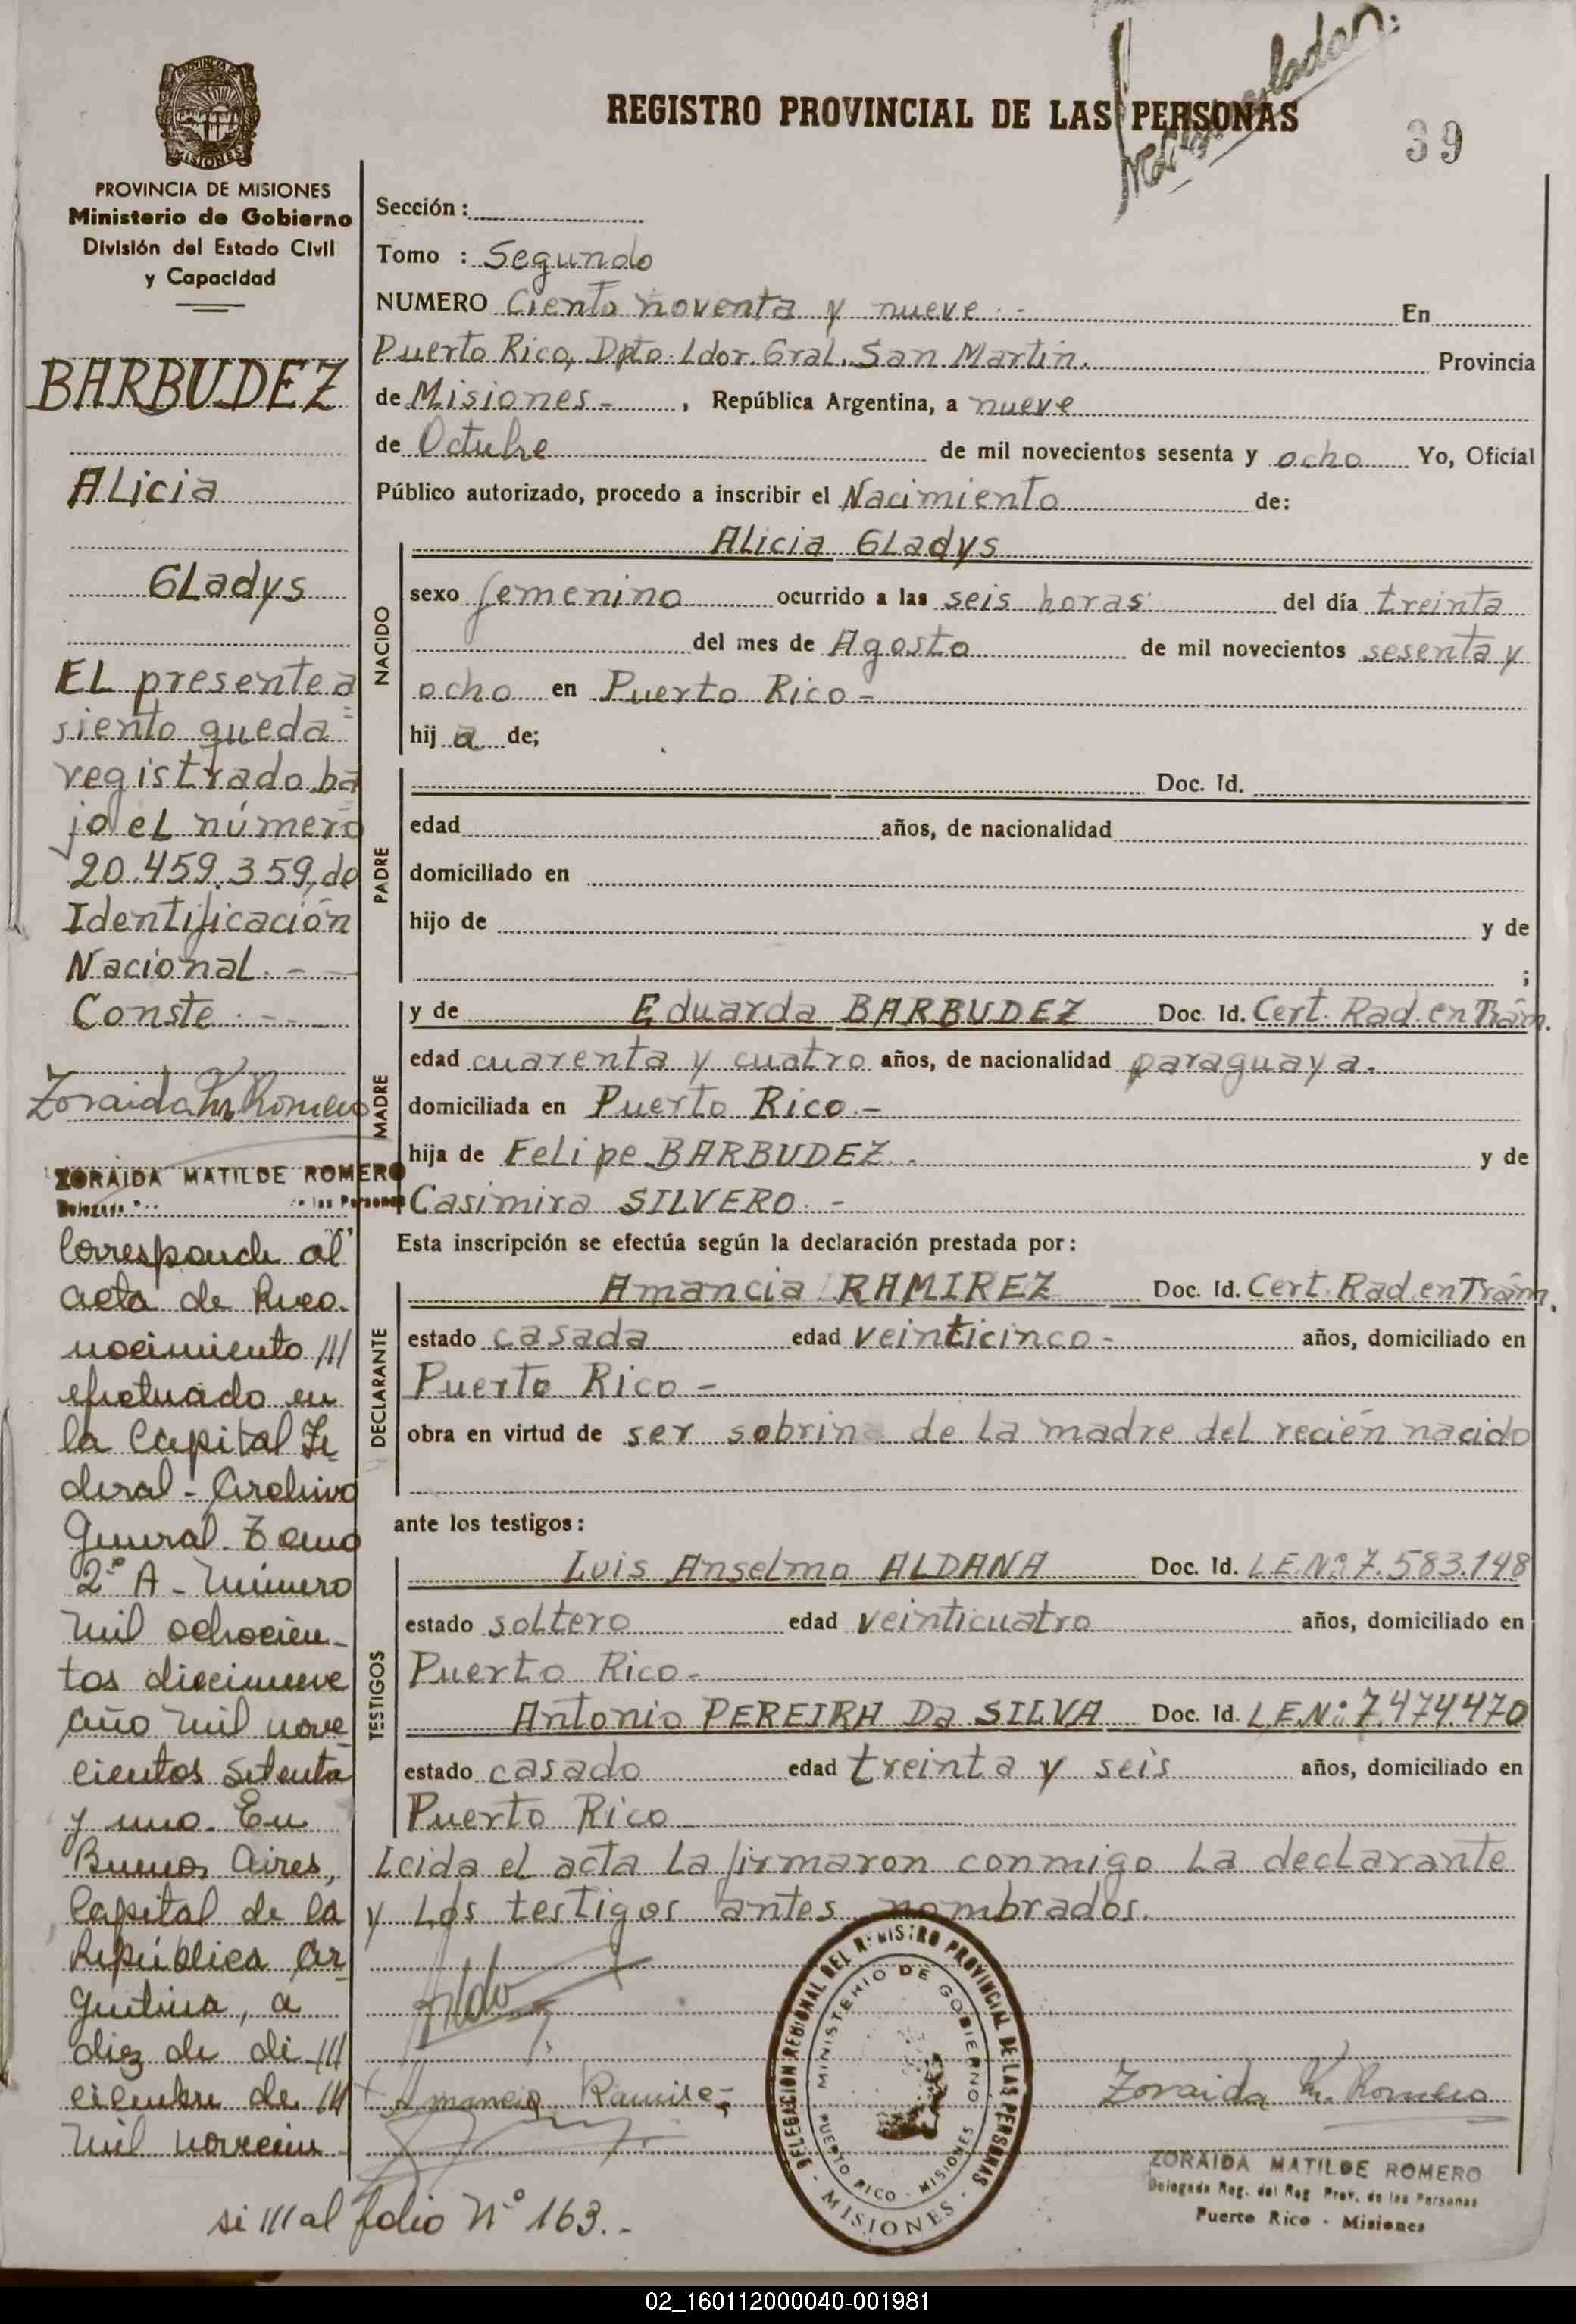 REGISTRO PROVINCIAL DE LAS PERSONAS
39
PROVINCIA DE MISIONES
MISIONES
PROVINCIA DE MISIONES
Ministerio de Gobierno
División del Estado Civil
y Capacidad
BARBUDEZ
ALicia
GLadys
EL presente a
siento queda
registrado ba
jo eL número
20.459.359, de
Identificación
NacionaL. -
Conste. - - -
Zoraida M. Romero
ZORAIDA MATILDE ROMERO
Corresponde al
acta de Reco-
nocimiento ///
efectuado en
la Capital Fe
deral - Archivo
General. Tomo
2º A - Número
mil ochocien-
tos diecinueve
año mil nove
cientos setenta
y uno. En
Buenos Aires,
Capital de la
República Ar
gentina, a
diez de di ///
ciembre de ///
mil novecien
si /// al folio Nº 163.-
Sección :
Tomo : Segundo
NUMERO Ciento noventa y nueve. - En
Puerto Rico, Dpto. Ldor. Gral. San Martin. Provincia
de Misiones - , República Argentina, a nueve
de Octubre de mil novecientos sesenta y ocho Yo, Oficial
Público autorizado, procedo a inscribir el Nacimiento de:
NACIDO
ALicia GLadys
sexo femenino ocurrido a las seis horas del día treinta
del mes de Agosto de mil novecientos sesenta y
ocho en Puerto Rico -
hij a de;
PADRE
Doc. Id.
edad años, de nacionalidad
domiciliado en
hijo de y de
;
MADRE
y de Eduarda BARBUDEZ Doc Id. Cert. Rad. en Trám.
edad cuarenta y cuatro años, de nacionalidad paraguaya.
domiciliada en Puerto Rico. -
hija de FeLipe BARBUDEZ. y de
Casimira SILVERO. -
Esta inscripción se efectúa según la declaración prestada por:
DECLARANTE
Amancia RAMIREZ Doc. Id. Cert. Rad. en Trám.
estado casada edad veinticinco - años, domiciliado en
Puerto Rico -
obra en virtud de ser sobrina de La madre deL recién nacido
ante los testigos:
TESTIGOS
Luis Anselmo ALDANA Doc. Id. L.E.Nº 7.583.148
estado soLtero edad veinticuatro años, domiciliado en
Puerto Rico -
Antonio PEREIRA Da SILVA Doc. Id. L.E.Nº: 7.474.470
estado casado edad treinta y seis años, domiciliado en
Puerto Rico
Leida el acta La firmaron conmigo La decLarante
y Los testigos antes nombrados.
Amancia Ramirez
DELEGACION REGIONAL DEL REGISTRO PROVINCIAL DE LAS PERSONAS
MINISTERIO DE GOBIERNO
PUERTO RICO - MISIONES
- MISIONES -
Zoraida M. Romero
ZORAIDA MATILDE ROMERO
Delegada Reg. del Reg. Prov. de las Personas
Puerto Rico - Misiones
02_160112000040-001981